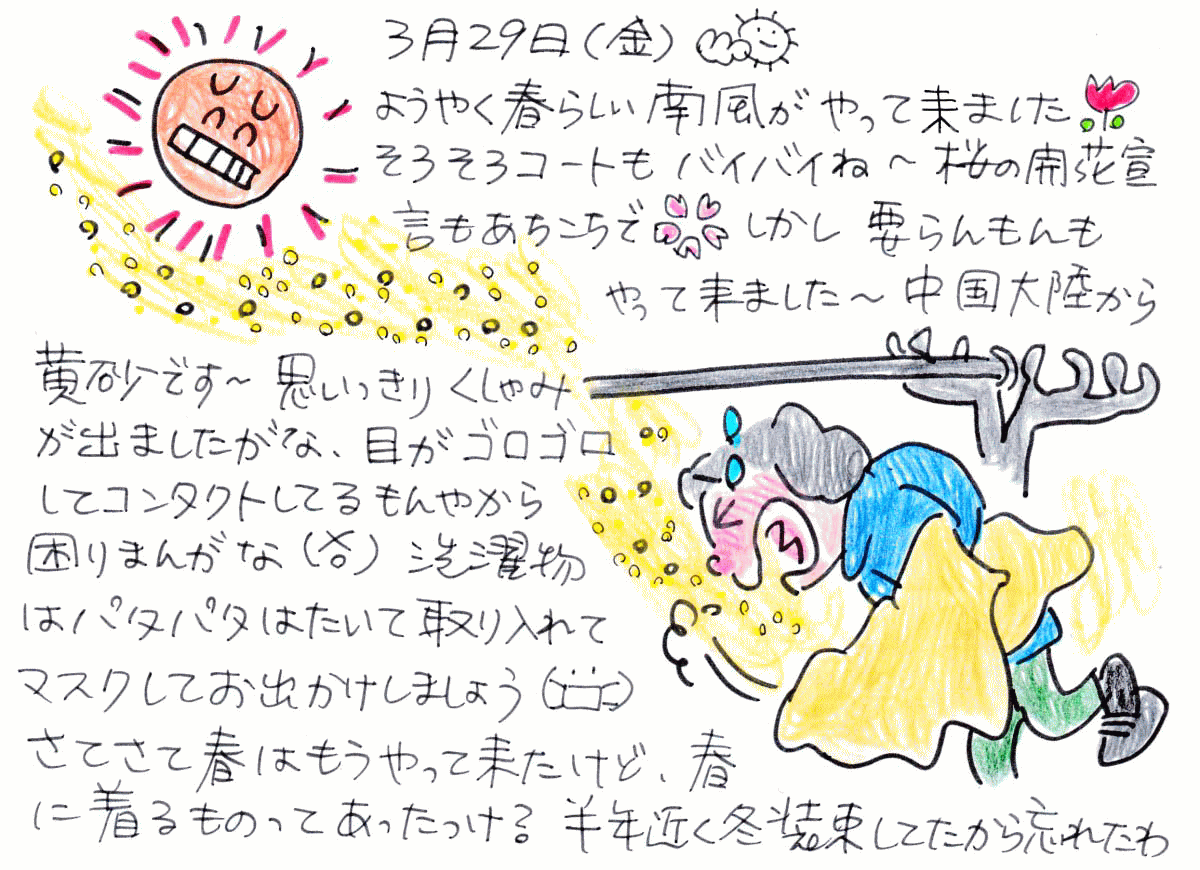 3月29日(金)
ようやく春らしい南風がやって来ました
そろそろコートもバイバイね〜桜の開花宣
言もあちこちで しかし 要らんもんも
やって来ました〜中国大陸から
黄砂です〜思いっきりくしゃみ
が出ましたがな、目がゴロゴロ
してコンタクトしてるもんやから
困りまんがな 洗濯物
はパタパタはたいて取り入れて
マスクしてお出かけしましょう
さてさて春はもうやって来たけど、春
に着るものってあったっけ？半年近く冬装束してたから忘れたわ